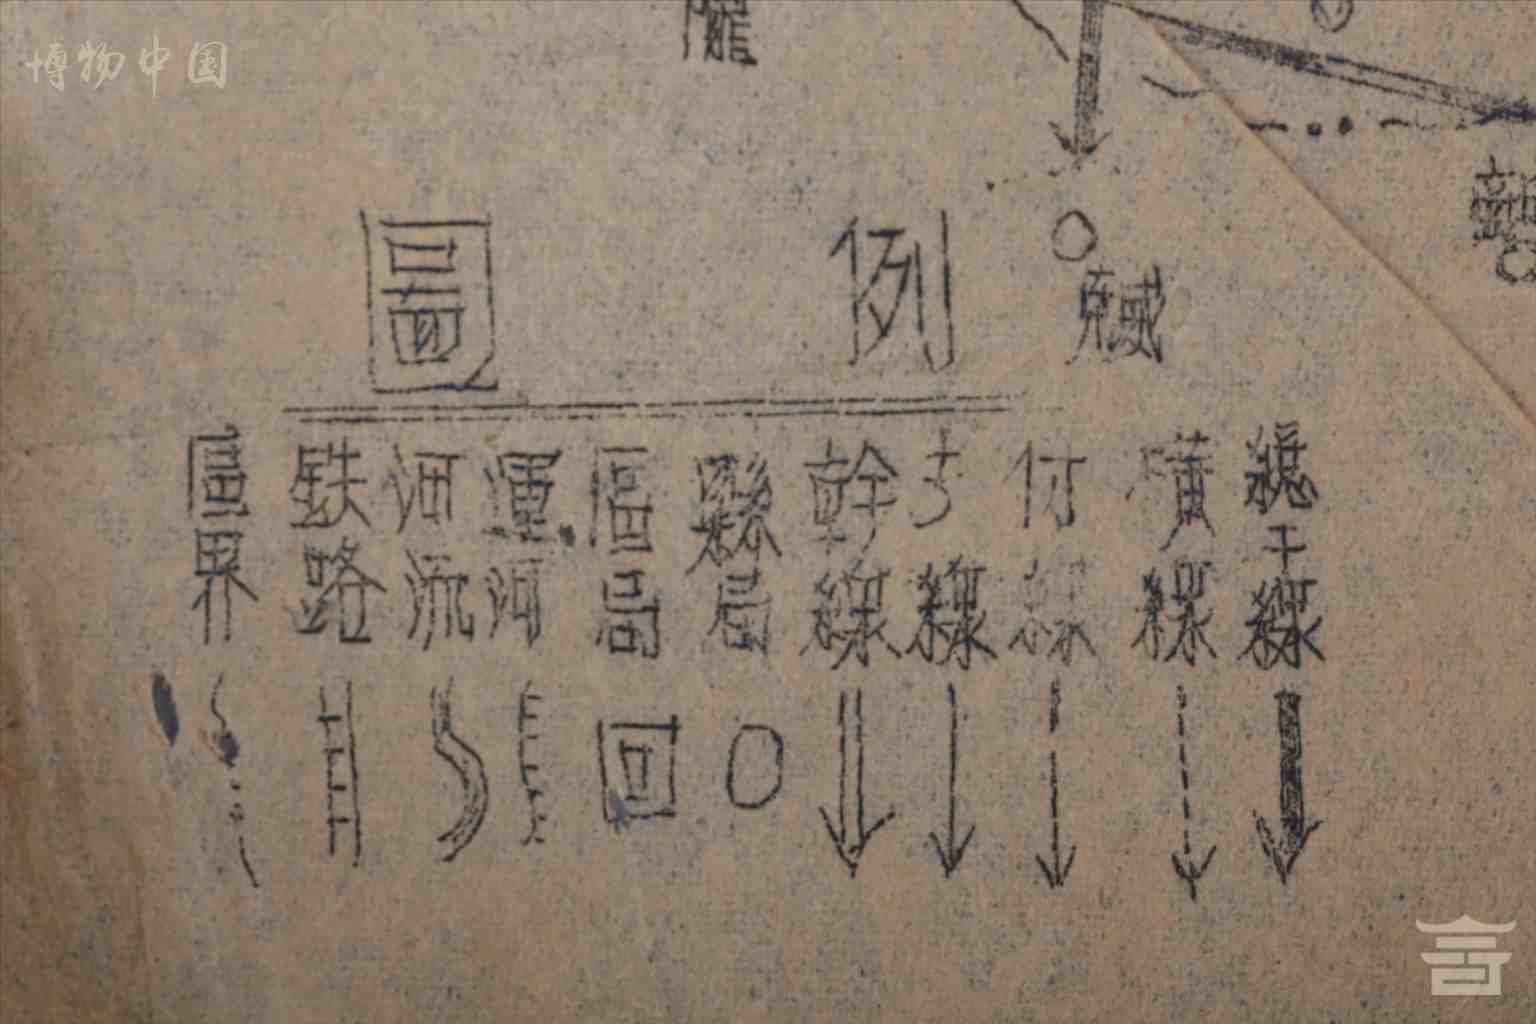 博物中国
圖例
區界
铁路
河流
運河
區局
縣局
幹線
線
付線
橫線
總干線